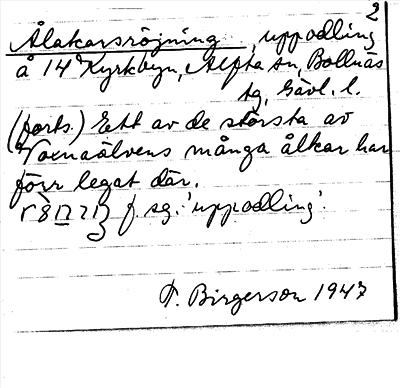 2
Ålakarsröjning, uppodling
å 14 Kyrkbyn, Alfta sn, Bollnäs
tg, Gävl. l.
(forts.) Ett av de största av
Voxnaälvens många ålkar har
förr legat där.
f. sg. 'uppodling'.
T. Birgerson 1947